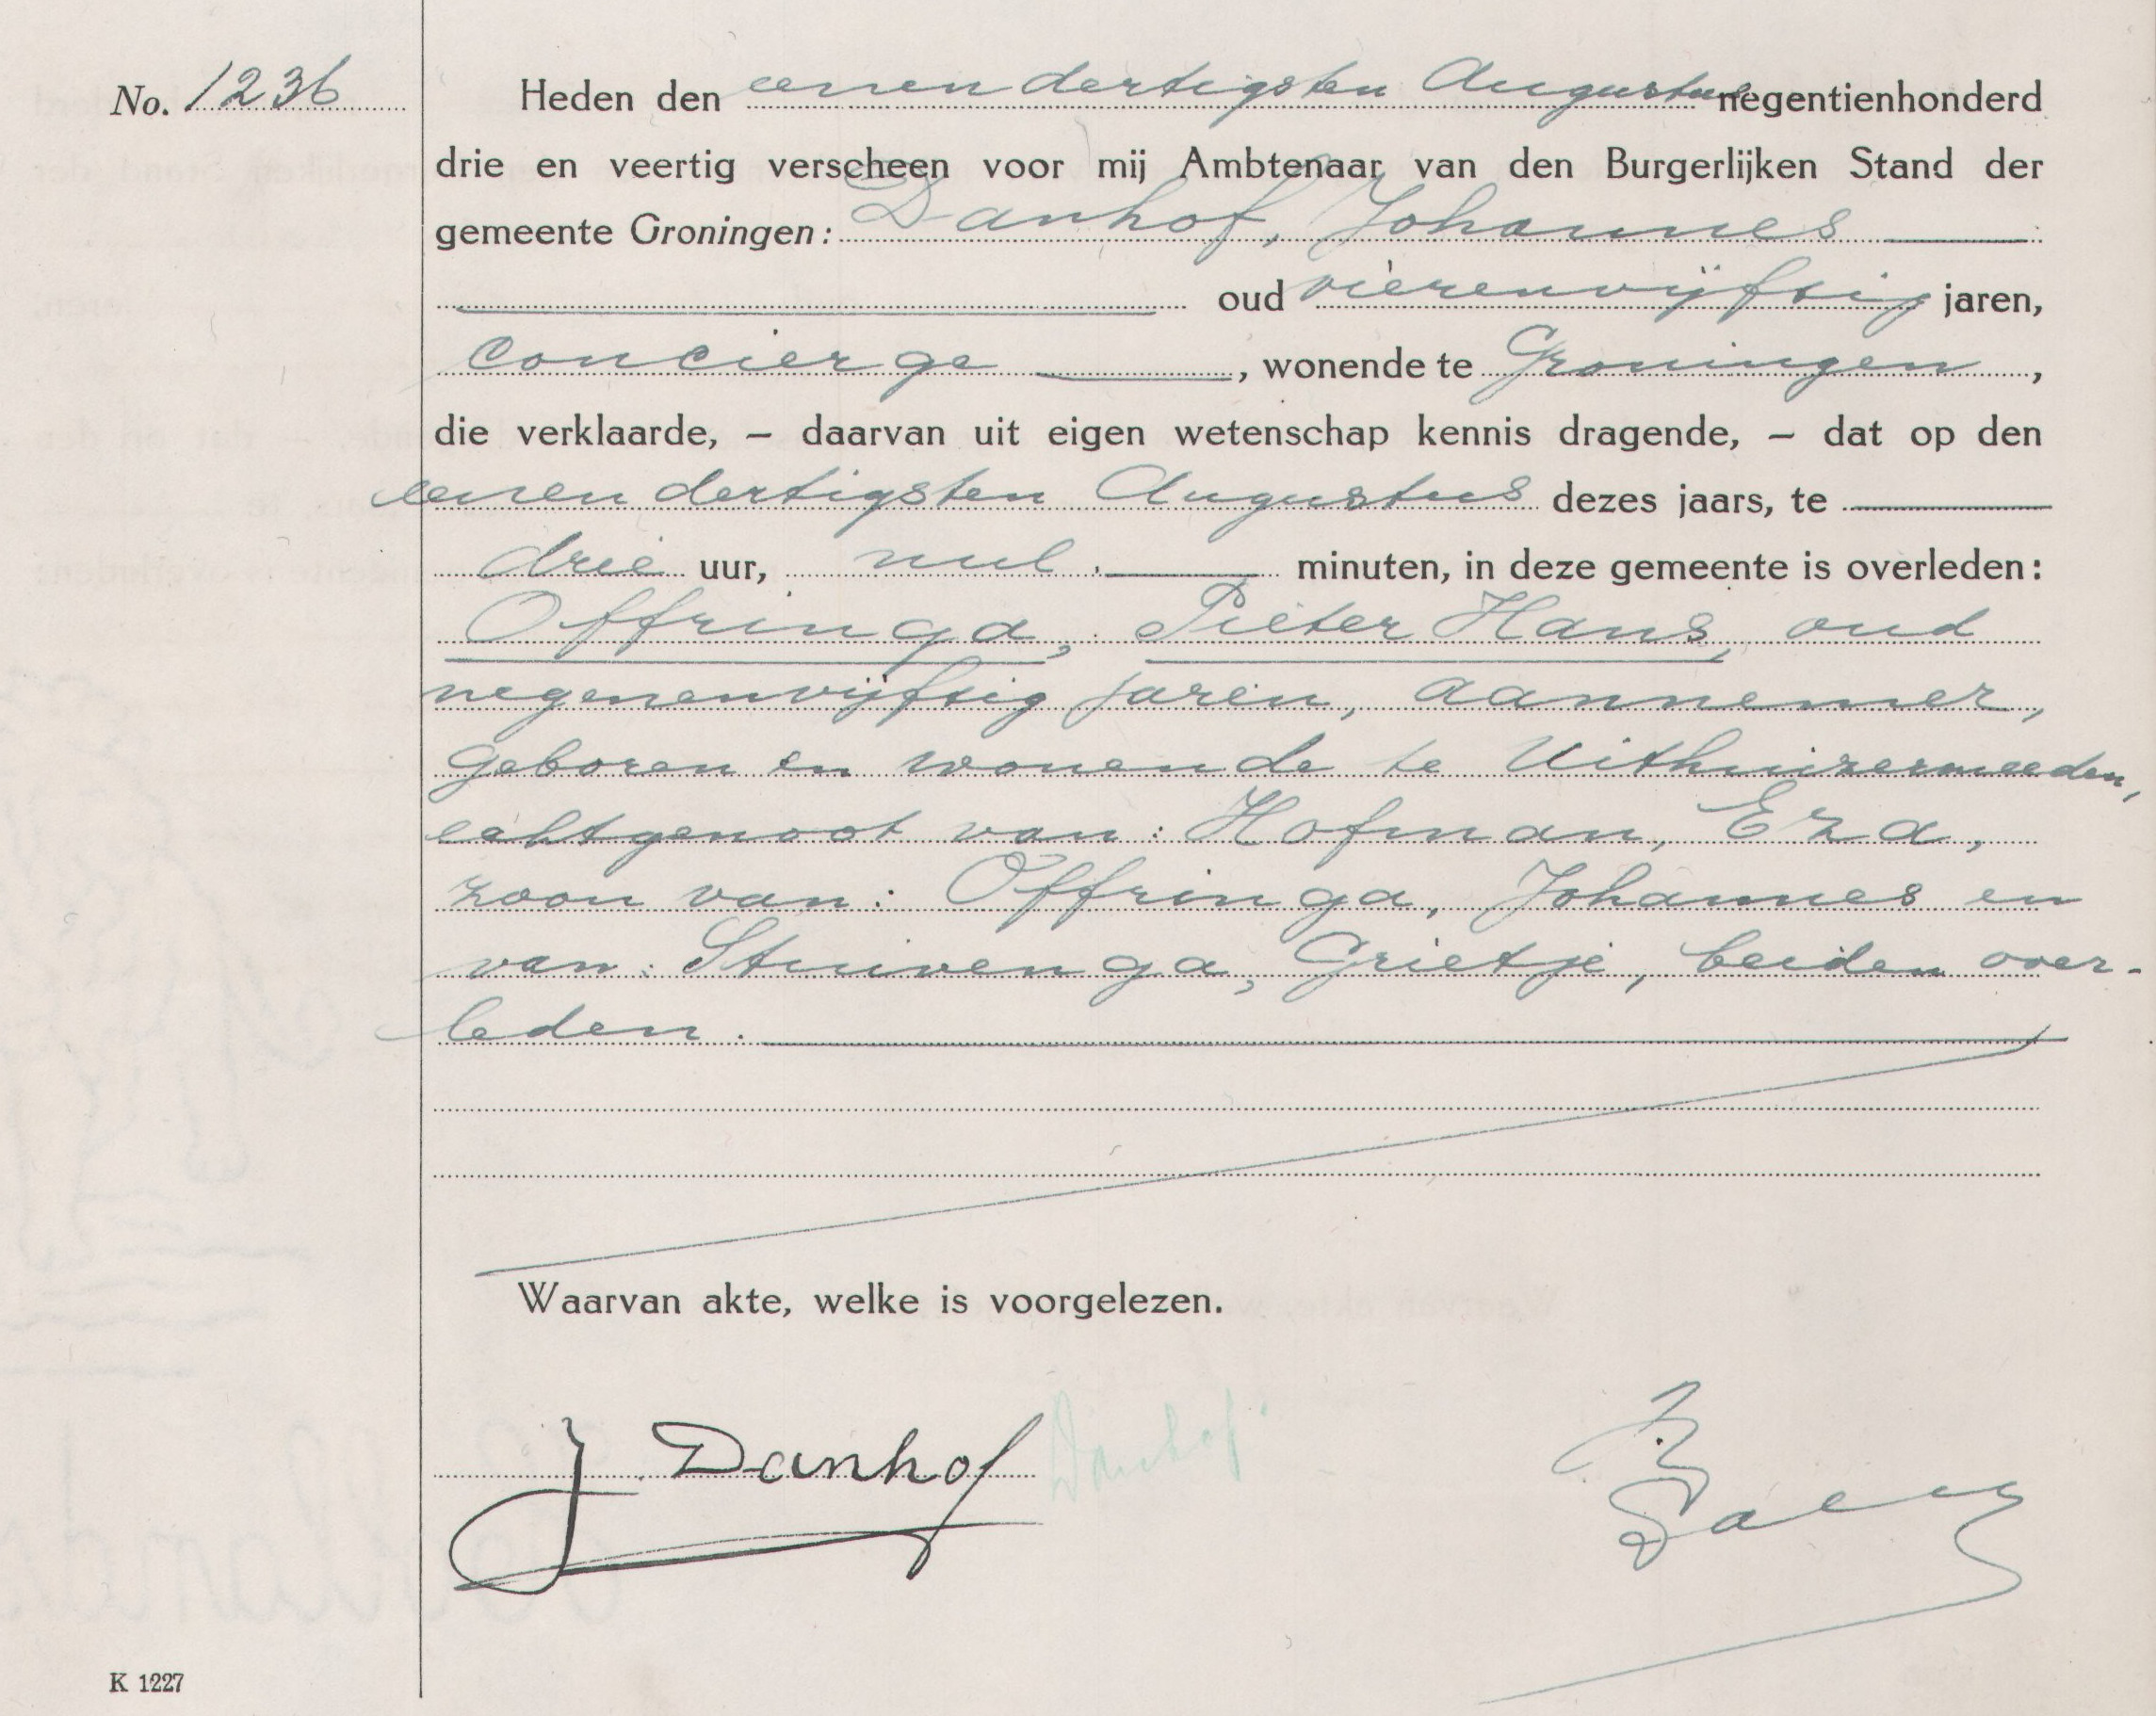 No. 1236
Heden den eenen dertigsten Augustus negentienhonderd
drie en veertig verscheen voor mij Ambtenaar van den Burgerlijken Stand der
gemeente Groningen: Danhof, Johannes
oud vierenvijftig jaren,
concierge, wonende te Groningen,
die verklaarde, – daarvan uit eigen wetenschap kennis dragende, – dat op den
eenen dertigsten Augustus dezes jaars, te
drie uur, nul minuten, in deze gemeente is overleden:
Offringa, Pieter Hans, oud
negenenvijftig jaren, aannemer,
geboren en wonende te Uithuizermeeden,
echtgenoot van: Hofman, Eza,
zoon van: Offringa, Johannes en
van: Stuivenga, Grietje, beiden over-
leden.
Waarvan akte, welke is voorgelezen.
J Danhof Danhof
K 1227